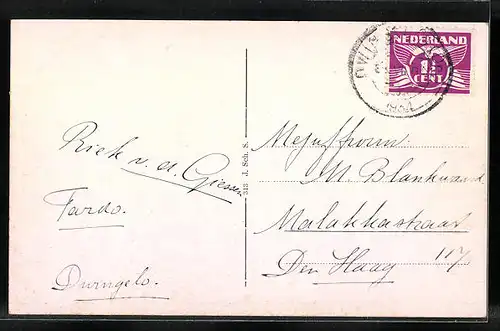 NEDERLAND
1½
CENT
Riek v. d. Giessen
Fardo.
Dwingelo.
313 J. Sch. S.
Mejuffrouw
M Blankwaard
Malakkastraat
117
Den Haag